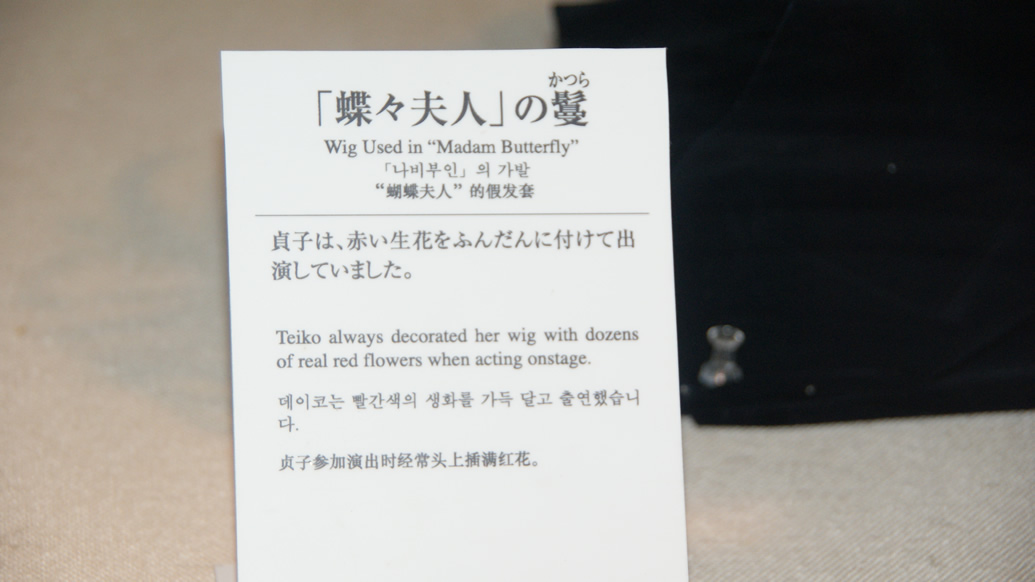 かつら
「蝶々夫人」の鬘
Wig Used in “Madam Butterfly”
「나비부인」의 가발
“蝴蝶夫人” 的假发套
貞子は、赤い生花をふんだんに付けて出
演していました。
Teiko always decorated her wig with dozens
of real red flowers when acting onstage.
데이코는 빨간색의 생화를 가득 달고 출연했습니
다.
贞子参加演出时经常头上插满红花。